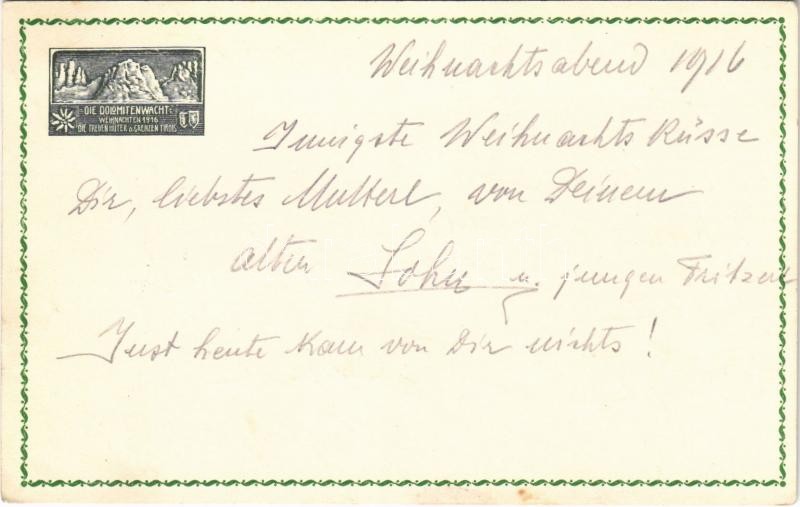 Weihnachtsabend 1916
DIE DOLOMITENWACHT
WEIHNACHTEN 1916
DIE TREUEN HÜTER D. GRENZEN TIROLS
Innigste Weihnachts Küsse
Dir, liebstes Mutterl, von Deinem
alten Sohn u. jungen Fritzerl
Just heute kam von Dir nichts!